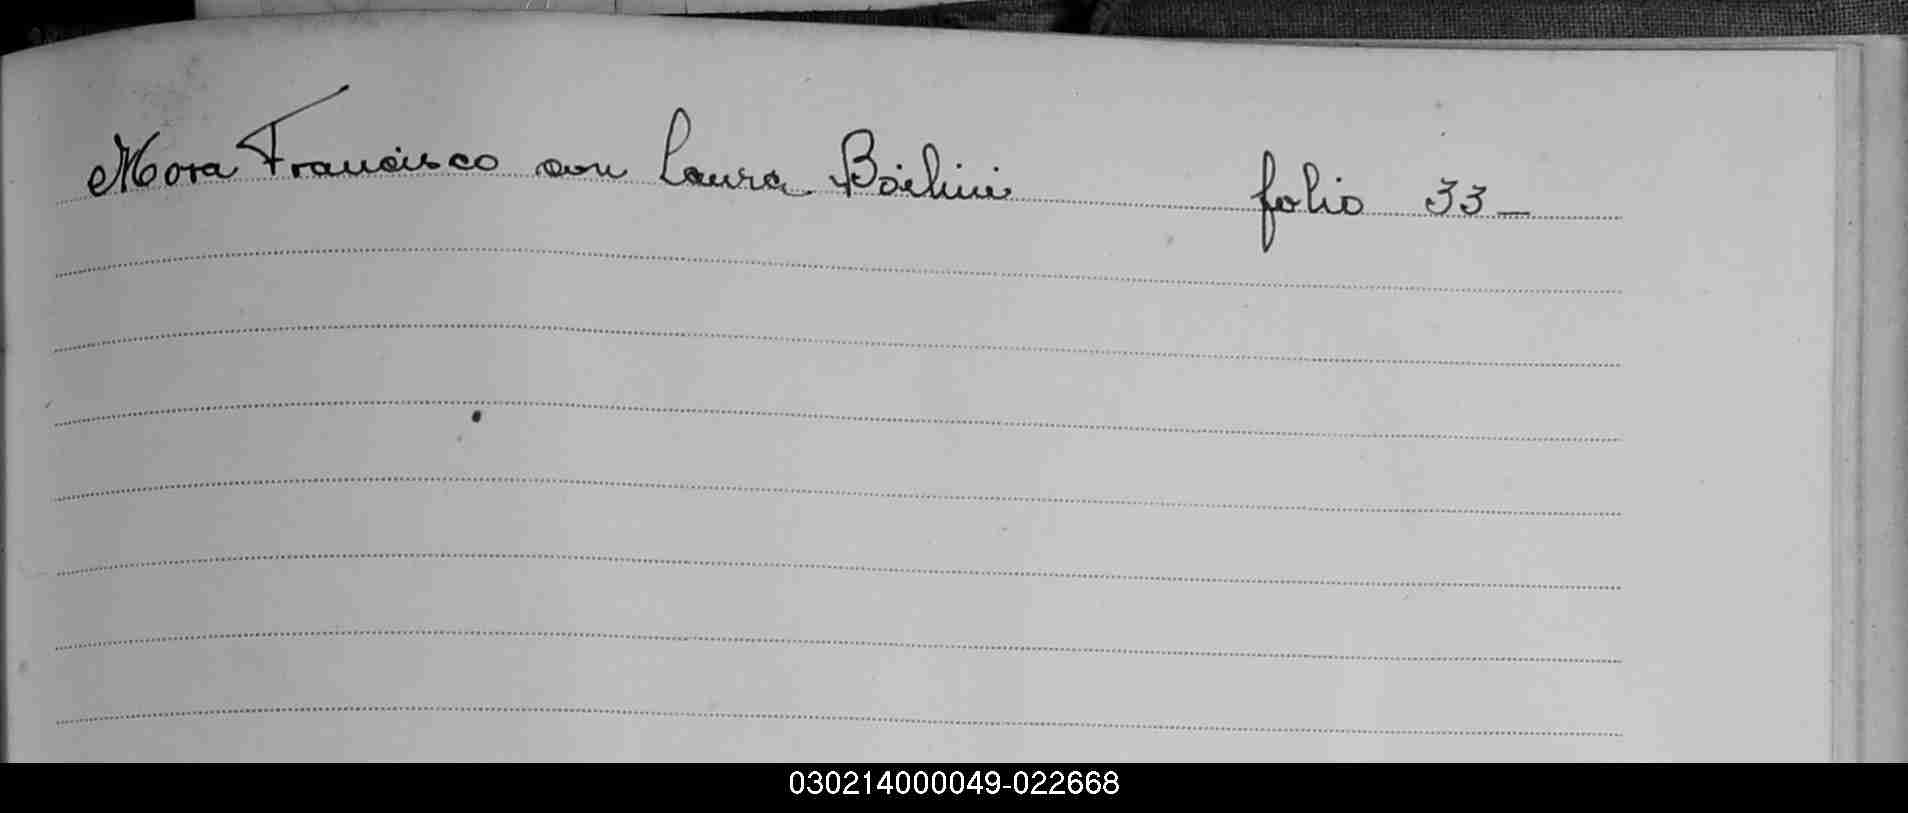 Mora Francisco con Laura Boilini folio 33_
030214000049-022668